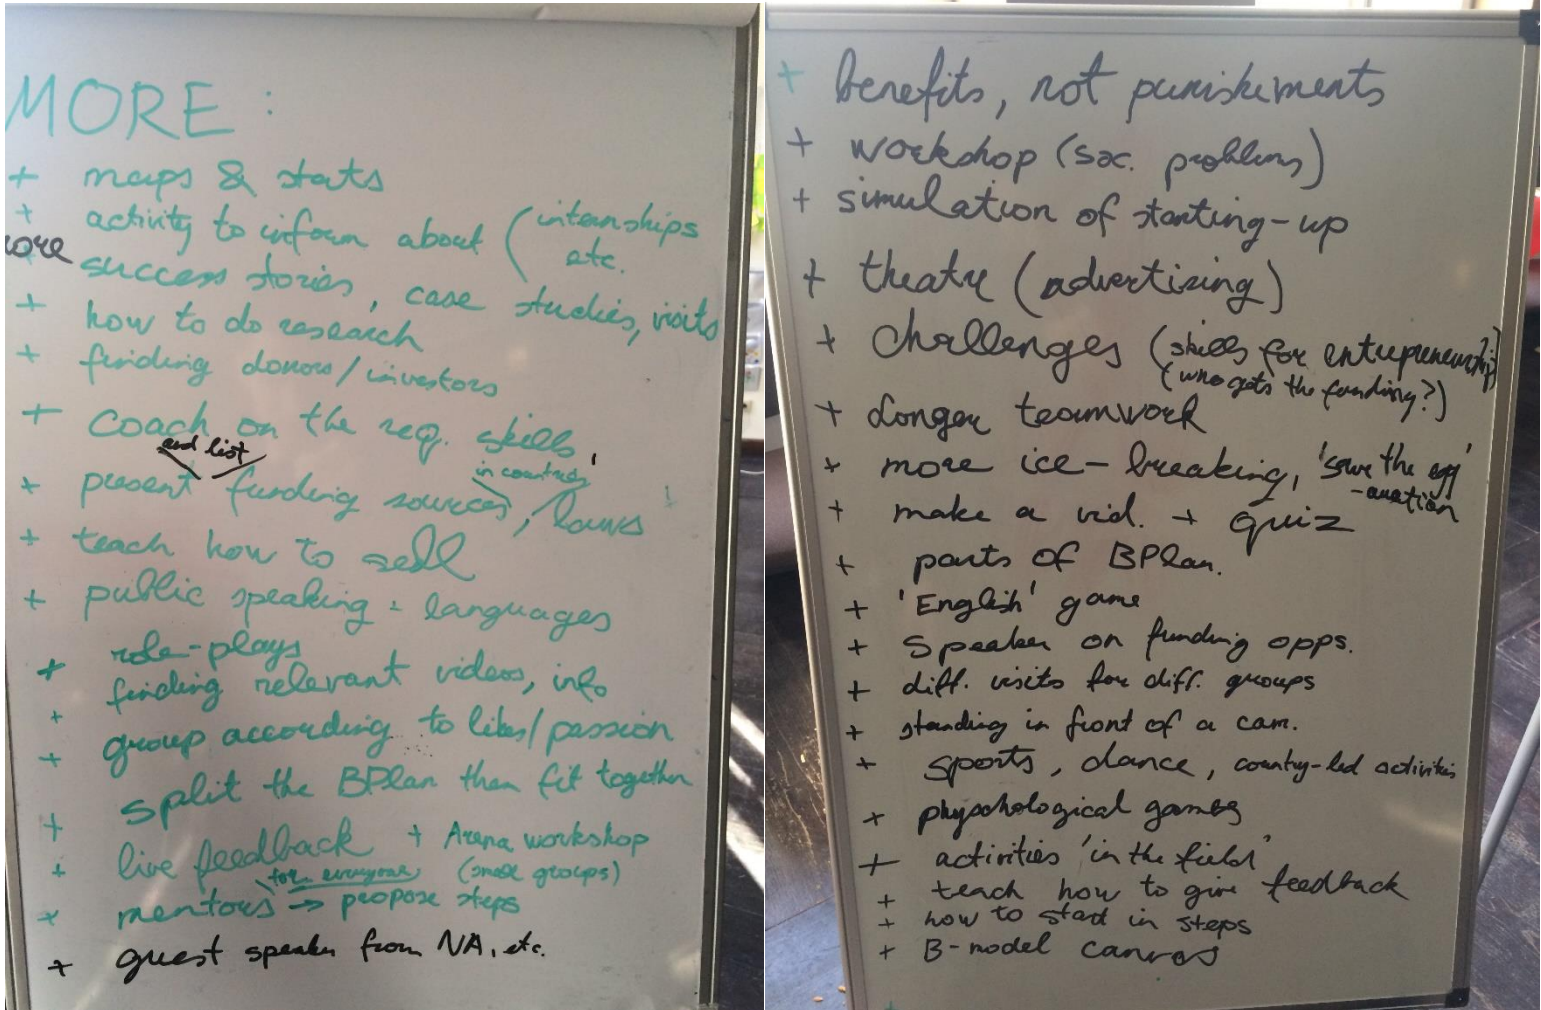 MORE :
+ maps & stats
+ activity to inform about (internships etc.
more success stories, case studies, visits
+ how to do research
+ finding donors/investors
+ coach on the req. skills
and list
in countries
+ present funding sources, laws
+ teach how to sell
+ public speaking + languages
role-plays
+ finding relevant videos, info
+ group according to likes/passion
+ split the BPlan then fit together
+ live feedback + Arena workshop
for everyone (small groups)
+ mentors → propose steps
+ guest speaker from NA, etc.
+ benefits, not punishements
+ workshop (soc. problems)
+ simulation of starting-up
+ theatre (advertising)
+ challenges (skills for entrepreneurship)
(who gets the funding?)
+ Longer teamwork
+ more ice-breaking, 'save the egg'
+ make a vid. + quiz
+ parts of BPlan.
+ 'English' game
+ Speaker on funding opps.
+ diff. visits for diff. groups
+ standing in front of a cam.
+ sports, dance, country-led activities
+ physchological games
+ activities 'in the field'
+ teach how to give feedback
+ how to start in steps
+ B-model canvas